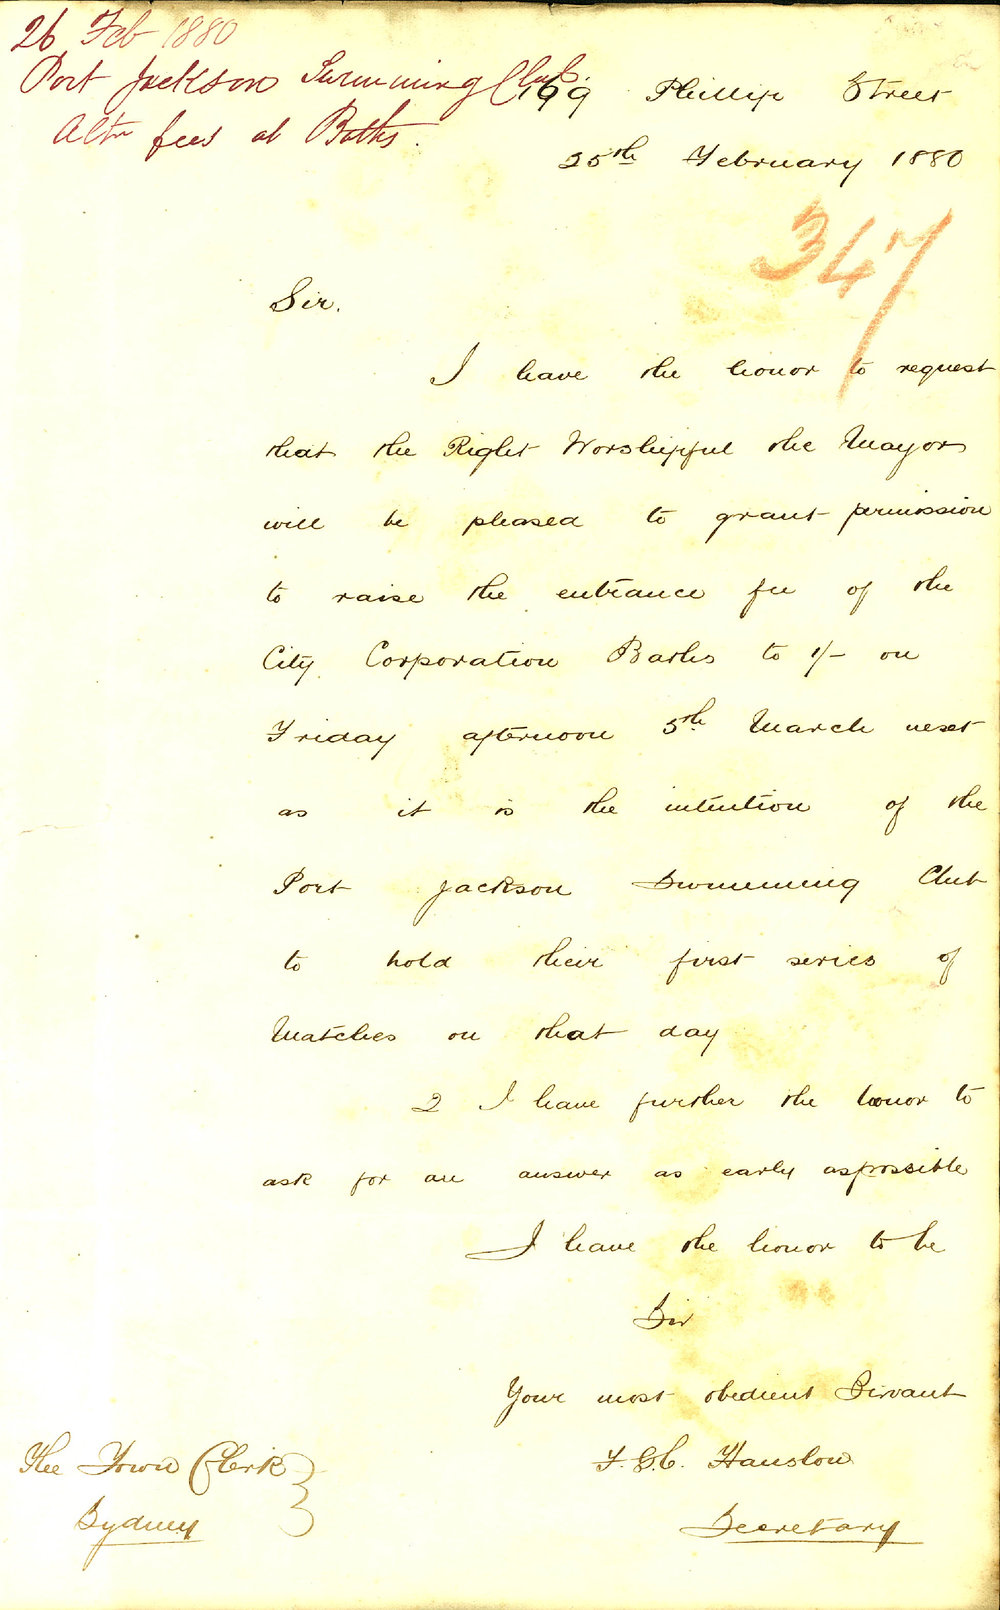 26 Feb 1880
Port Jackson Swimming Club.
Altn fees at Baths.
169 Phillip Street
25th February 1880
347
Sir.
I have the honor to request
that the Right Worshipful the Mayor
will be pleased to grant permission
to raise the entrance fee of the
City Corporation Baths to 1/- on
Friday afternoon 5th March next
as it is the intention of the
Port Jackson Swimming Club
to hold their first series of
Matches on that day
2 I have further the honor to
ask for an answer as early as possible
I have the honor to be
Sir
Your most obedient Servant
F. G. C. Hanslow
Secretary
The Town Clerk
Sydney